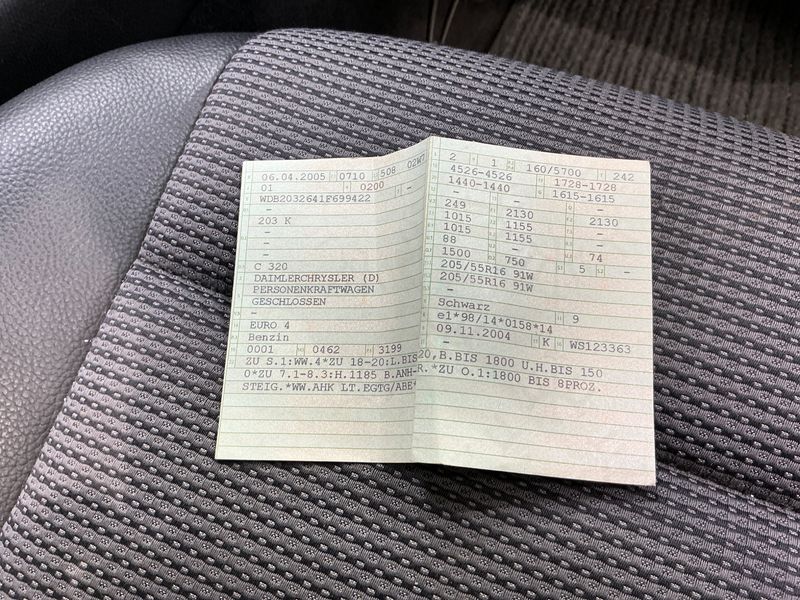 06.04.2005 0710 508 02W7
01 0200 -
WDB2032641F699422
-
203 K
-
-
-
C 320
DAIMLERCHRYSLER (D)
PERSONENKRAFTWAGEN
GESCHLOSSEN
-
EURO 4
Benzin
0001 0462 3199
2 1 160/5700 242
4526-4526 1728-1728
1440-1440 1615-1615
- -
249 2130 2130
1015 1155 -
1015 1155 -
88 - 74
1500 750 5 -
205/55R16 91W
205/55R16 91W
-
-
Schwarz 9
e1*98/14*0158*14
09.11.2004 K WS123363
ZU S.1:WW.4*ZU 18-20:L.BIS 20,B.BIS 1800 U.H.BIS 150
0*ZU 7.1-8.3:H.1185 B.ANH-R.*ZU O.1:1800 BIS 8PROZ.
STEIG.*WW.AHK LT.EGTG/ABE*